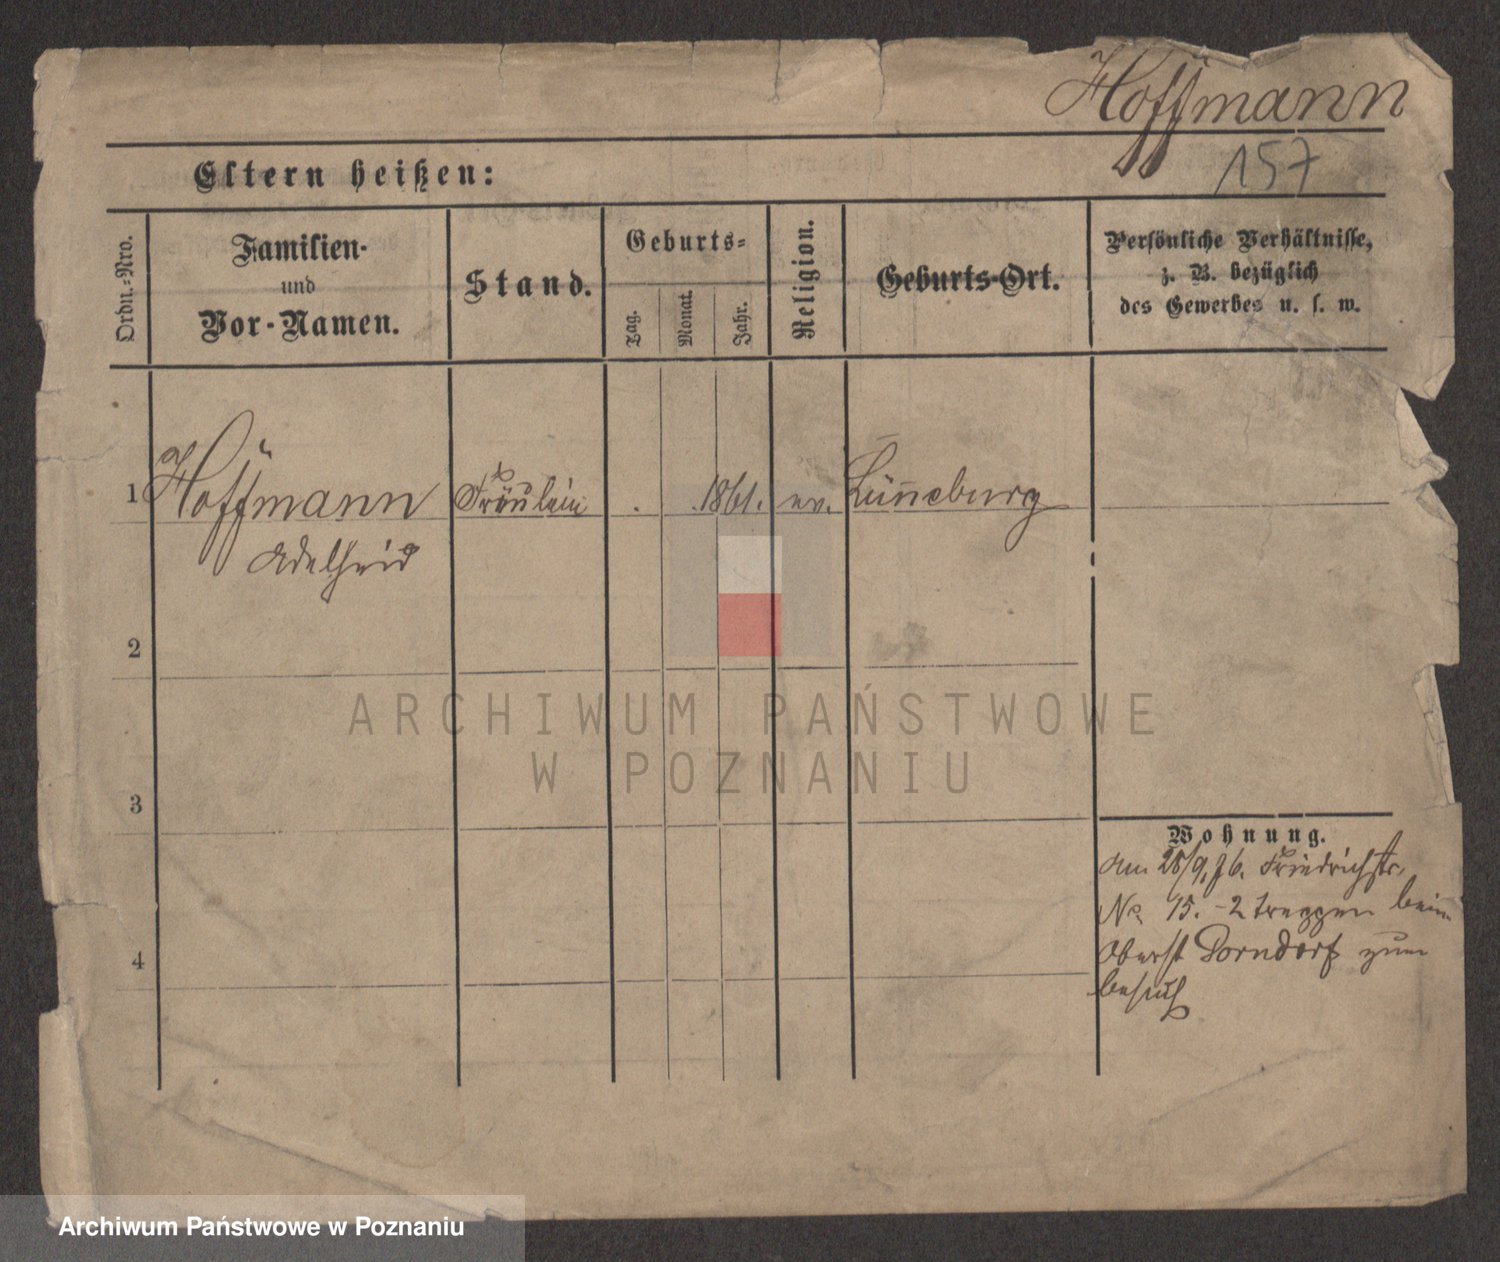 Hoffmann
157
Eltern heißen:
Ordn.-Nro.
Familien-
und
Vor-Namen.
Stand.
Geburts-
Tag.
Monat.
Jahr.
Religion.
Geburts-Ort.
Persönliche Verhältnisse,
z. B. bezüglich
des Gewerbes u. s. w.
1 Hoffmann Fräulein . . 1861. ev. Lüneburg
Adelheid
2
3
4
Wohnung.
Am 28/9. 76. Friedrichstr.
No 15. - 2 Treppen beim
Oberst Dorndorf zum
besuch
ARCHIWUM PAŃSTWOWE
W POZNANIU
Archiwum Państwowe w Poznaniu